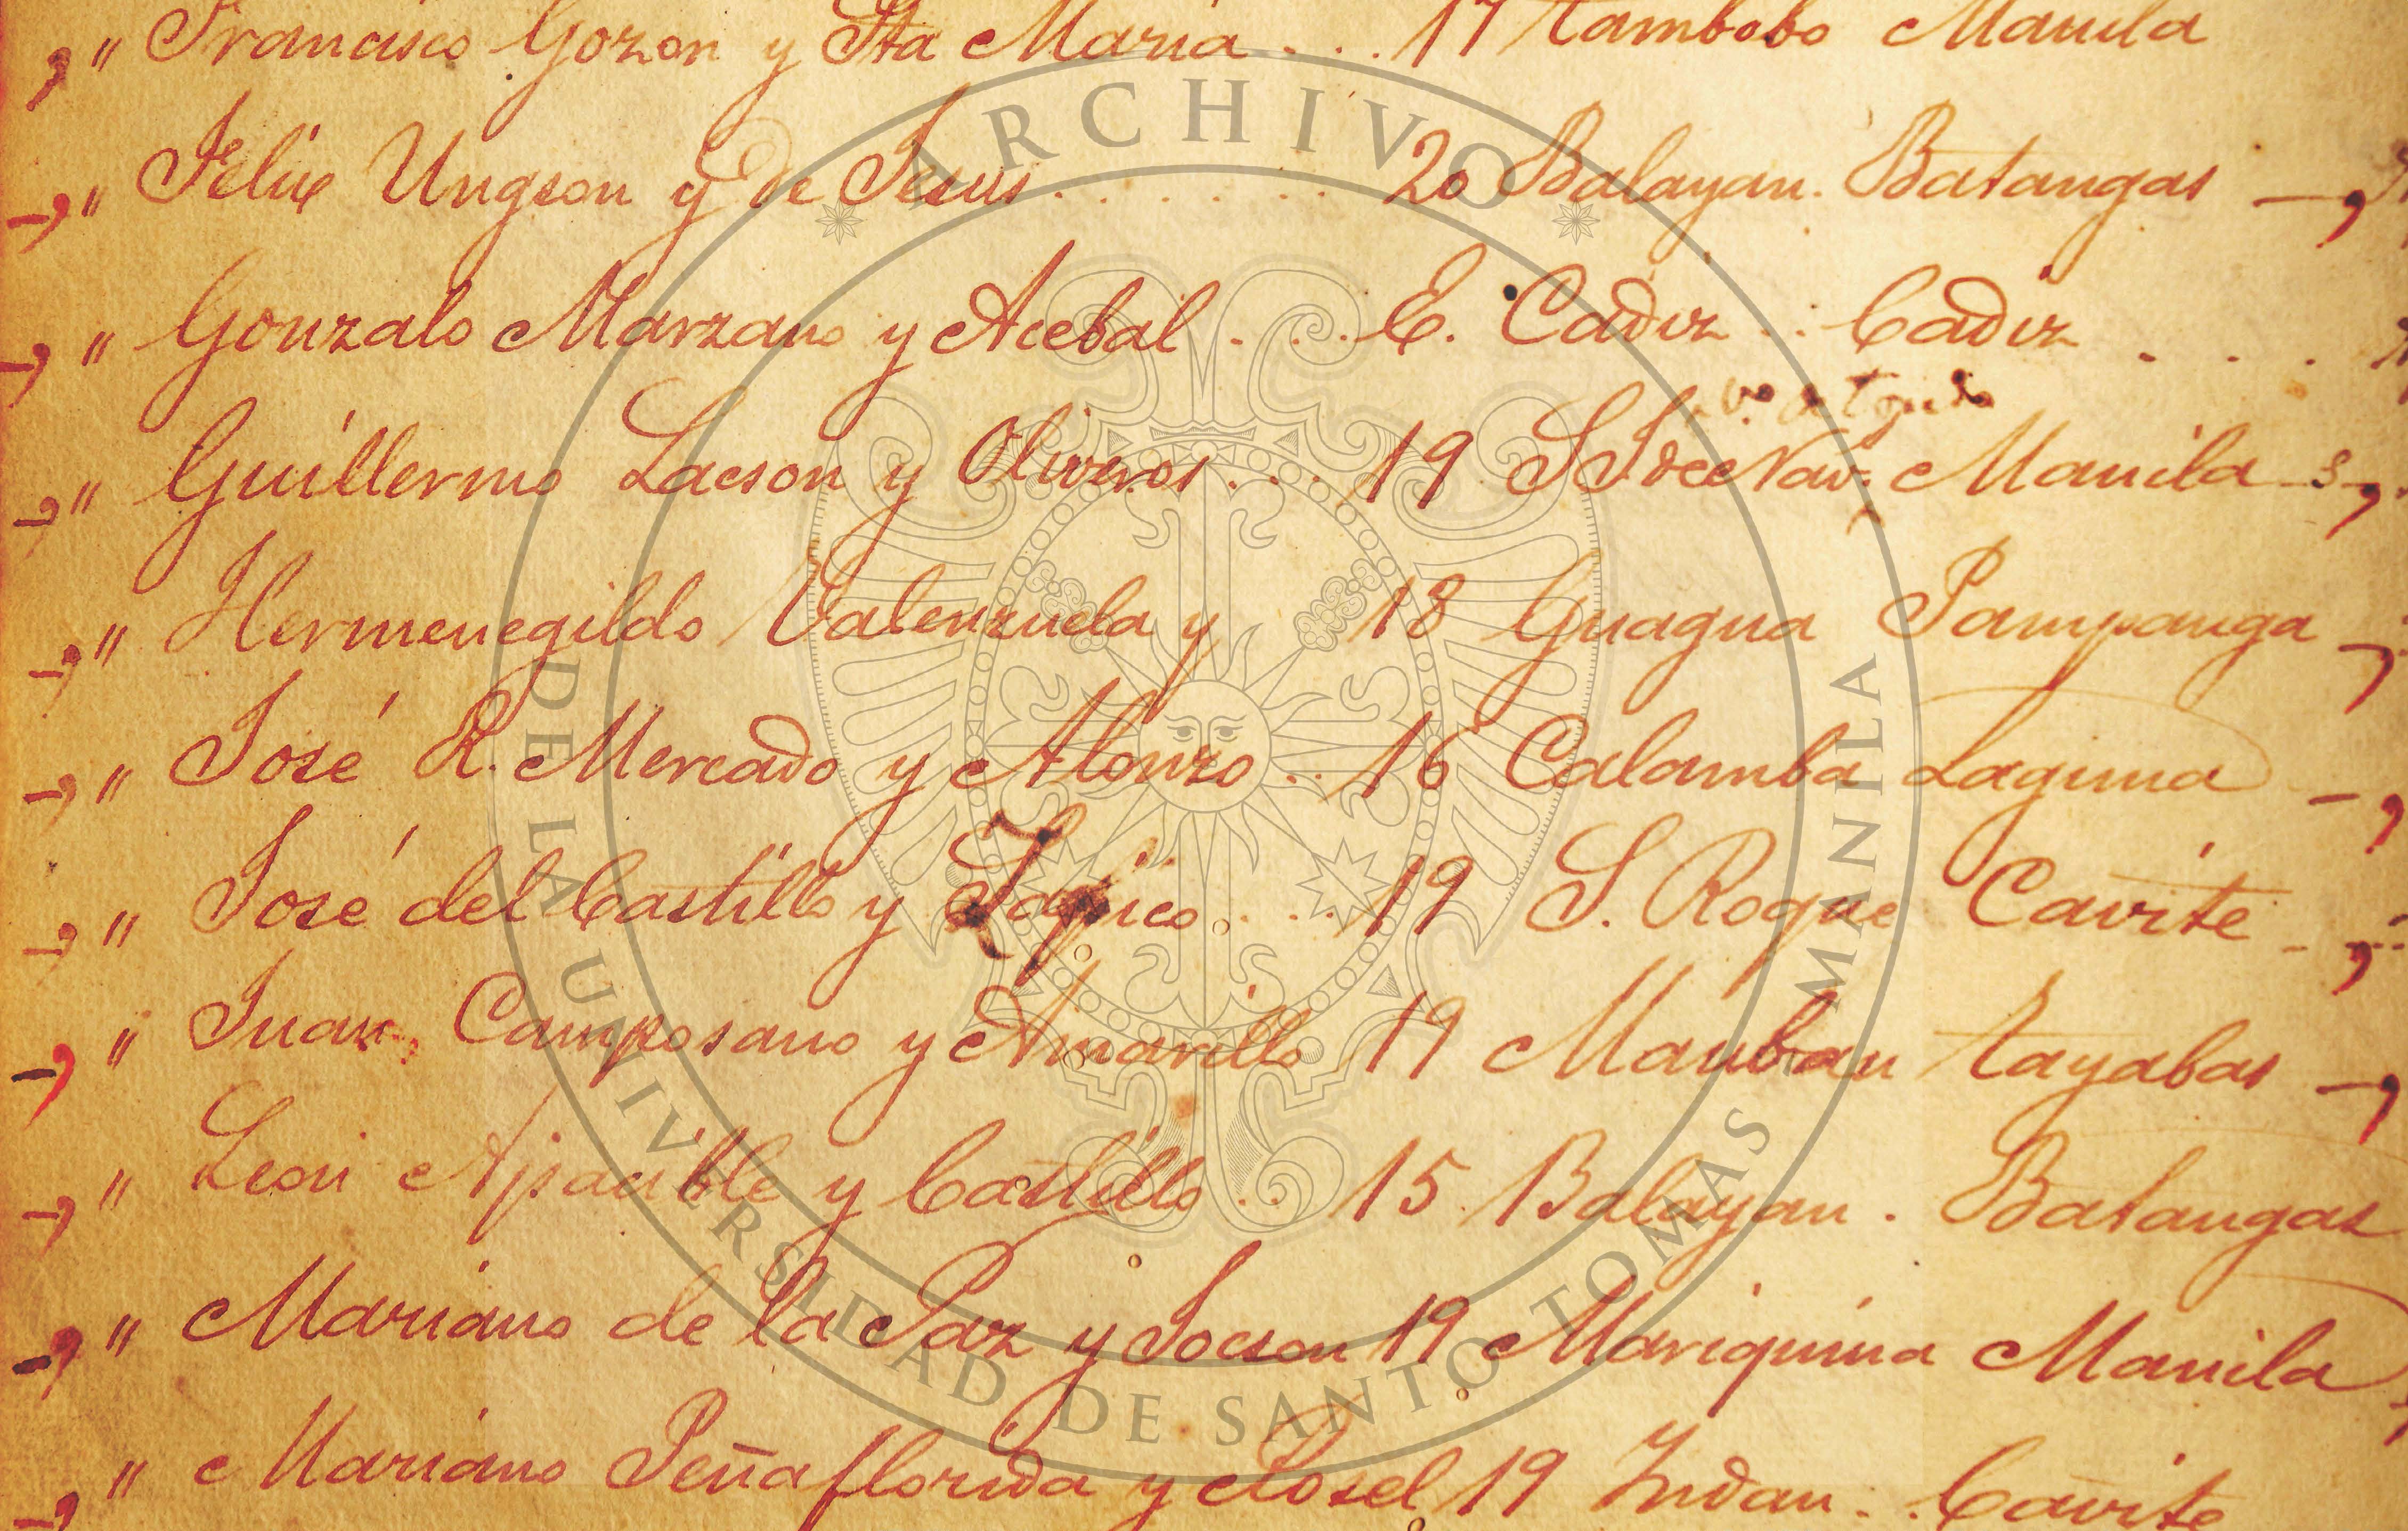 " Francisco Gozon y Sta Maria . . . 17 Tambobo Manila
" Felix Ungson y de Jesus . . . . . . 20 Balayan. Batangas
" Gonzalo Marzano y Acebal . . . E. Cadiz . . Cadiz . . .
" Guillermo Lacson y Oliveros . . . 19 Manila
" Hermenegildo Valenzuela y 18 Guagua Pampanga
" José R. Mercado y Alonzo . . 16 Calamba Laguna
" José del Castillo y . . . 19 S. Roque Cavite
" Juan Camposano y Amarillo 19 Mauban Tayabas
" Leon Apacible y Castillo . . 15 Balayan . Batangas
" Mariano de la Paz y Jocson 19 Mariquina Manila
" Mariano Peñaflorida y Rosel 19 Indan . . Cavite
ARCHIVO
DE LA UNIVERSIDAD DE SANTO TOMAS MANILA